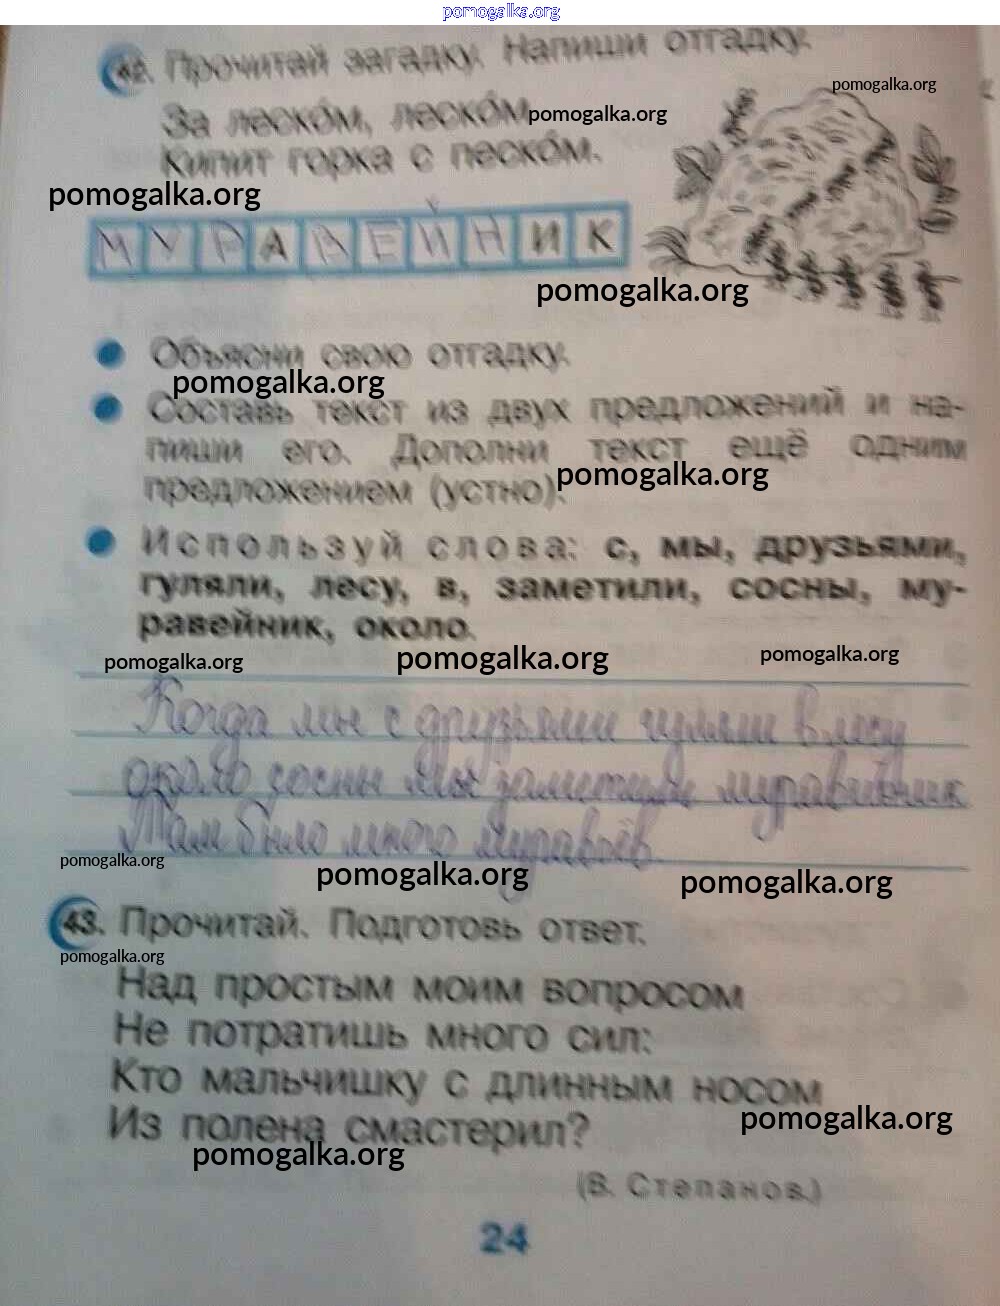 pomogalka.org
42. Прочитай загадку. Напиши отгадку.
pomogalka.org
За леско́м, леско́м
pomogalka.org
Кипит горка с песко́м.
pomogalka.org
МУРАВЕЙНИК
pomogalka.org
Объясни свою отгадку.
pomogalka.org
Составь текст из двух предложений и на-
пиши его. Дополни текст ещё одним
pomogalka.org
предложением (устно).
Используй слова: с, мы, друзьями,
гуляли, лесу, в, заметили, сосны, му-
равейник, около.
pomogalka.org pomogalka.org pomogalka.org
Когда мы с друзьями гуляли в лесу
около сосны мы заметили муравейник
Там было много муравьёв
pomogalka.org pomogalka.org pomogalka.org
43. Прочитай. Подготовь ответ.
pomogalka.org
Над простым моим вопросом
Не потратишь много сил:
Кто мальчишку с длинным носом
pomogalka.org
Из полена смастерил?
pomogalka.org
(В. Степанов.)
24